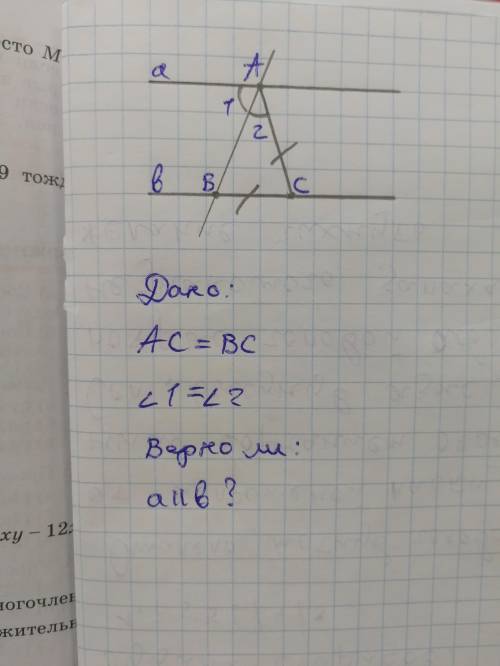 есто М
a A
1
9 тожд
2
в B C
Дано:
AC = BC
∠1 = ∠2
Верно ли:
a॥в ?
xy – 12
ногочлен
жительн